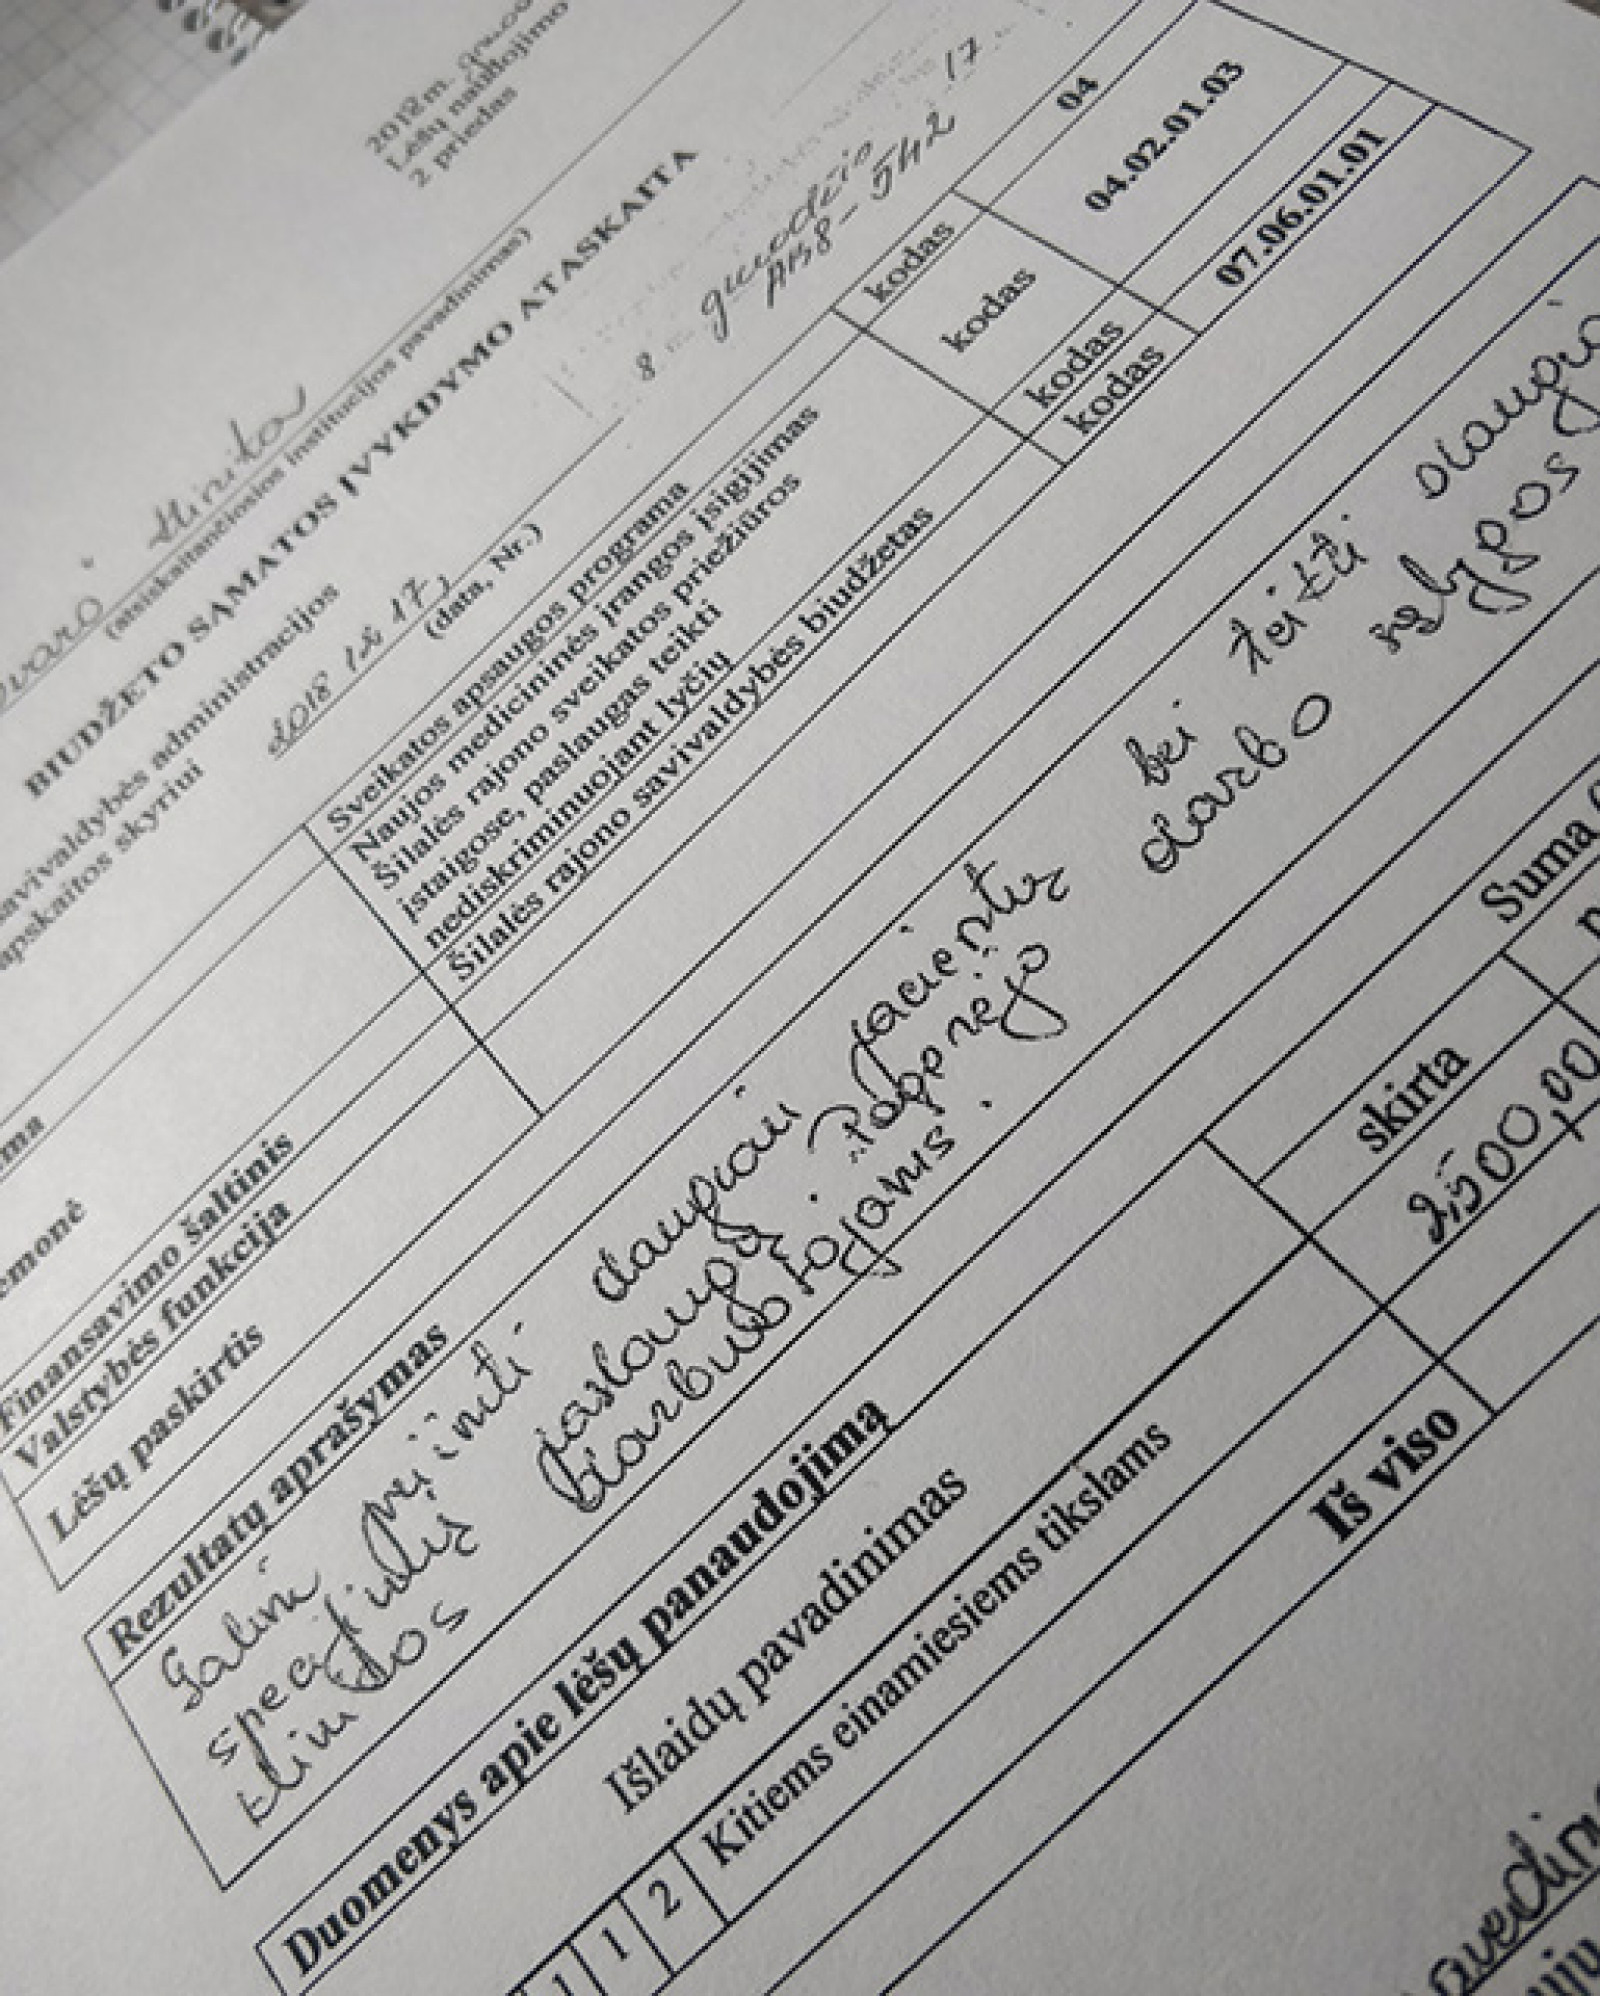 2018 m.
Lėšų naudojimo
2 priedas
(atsiskaitančiosios institucijos pavadinimas)
BIUDŽETO SĄMATOS ĮVYKDYMO ATASKAITA
savivaldybės administracijos
apskaitos skyriui
8 m. gruodžio 17
AB8-542
2018 12 17,
(data, Nr.)
Sveikatos apsaugos programa kodas 04
Naujos medicininės įrangos įsigijimas
Šilalės rajono sveikatos priežiūros
įstaigose, paslaugas teikti
nediskriminuojant lyčių
kodas 04.02.01.03
Finansavimo šaltinis Šilalės rajono savivaldybės biudžetas kodas
Valstybės funkcija kodas 07.06.01.01
Lėšų paskirtis
Rezultatų aprašymas
Galim priimti daugiau pacientų bei teikti daugiau
specifinių paslaugų. Pagerėjo darbo sąlygos
klinikos darbuotojams.
Duomenys apie lėšų panaudojimą
Suma
Išlaidų pavadinimas skirta
1 1 2 Kitiems einamiesiems tikslams 2500,00
Iš viso